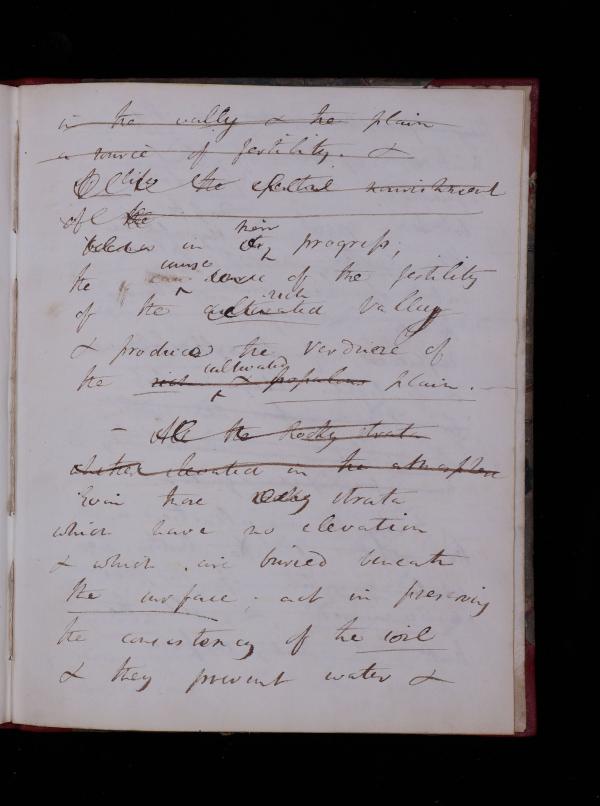 in the vally & the plain
a source of fertility. &
the nourishment
of the
in their progress,
the cause of the fertility
of the rich Valley
& produce the Verdure of
the rich cultivated & populous plain.
- All the Rocky strata
whether elevated in the atmosphere
Even those Rocky strata
which have no elevation
& which are buried beneath
the surface, act in preserving
the consistency of the soil
& they prevent water &